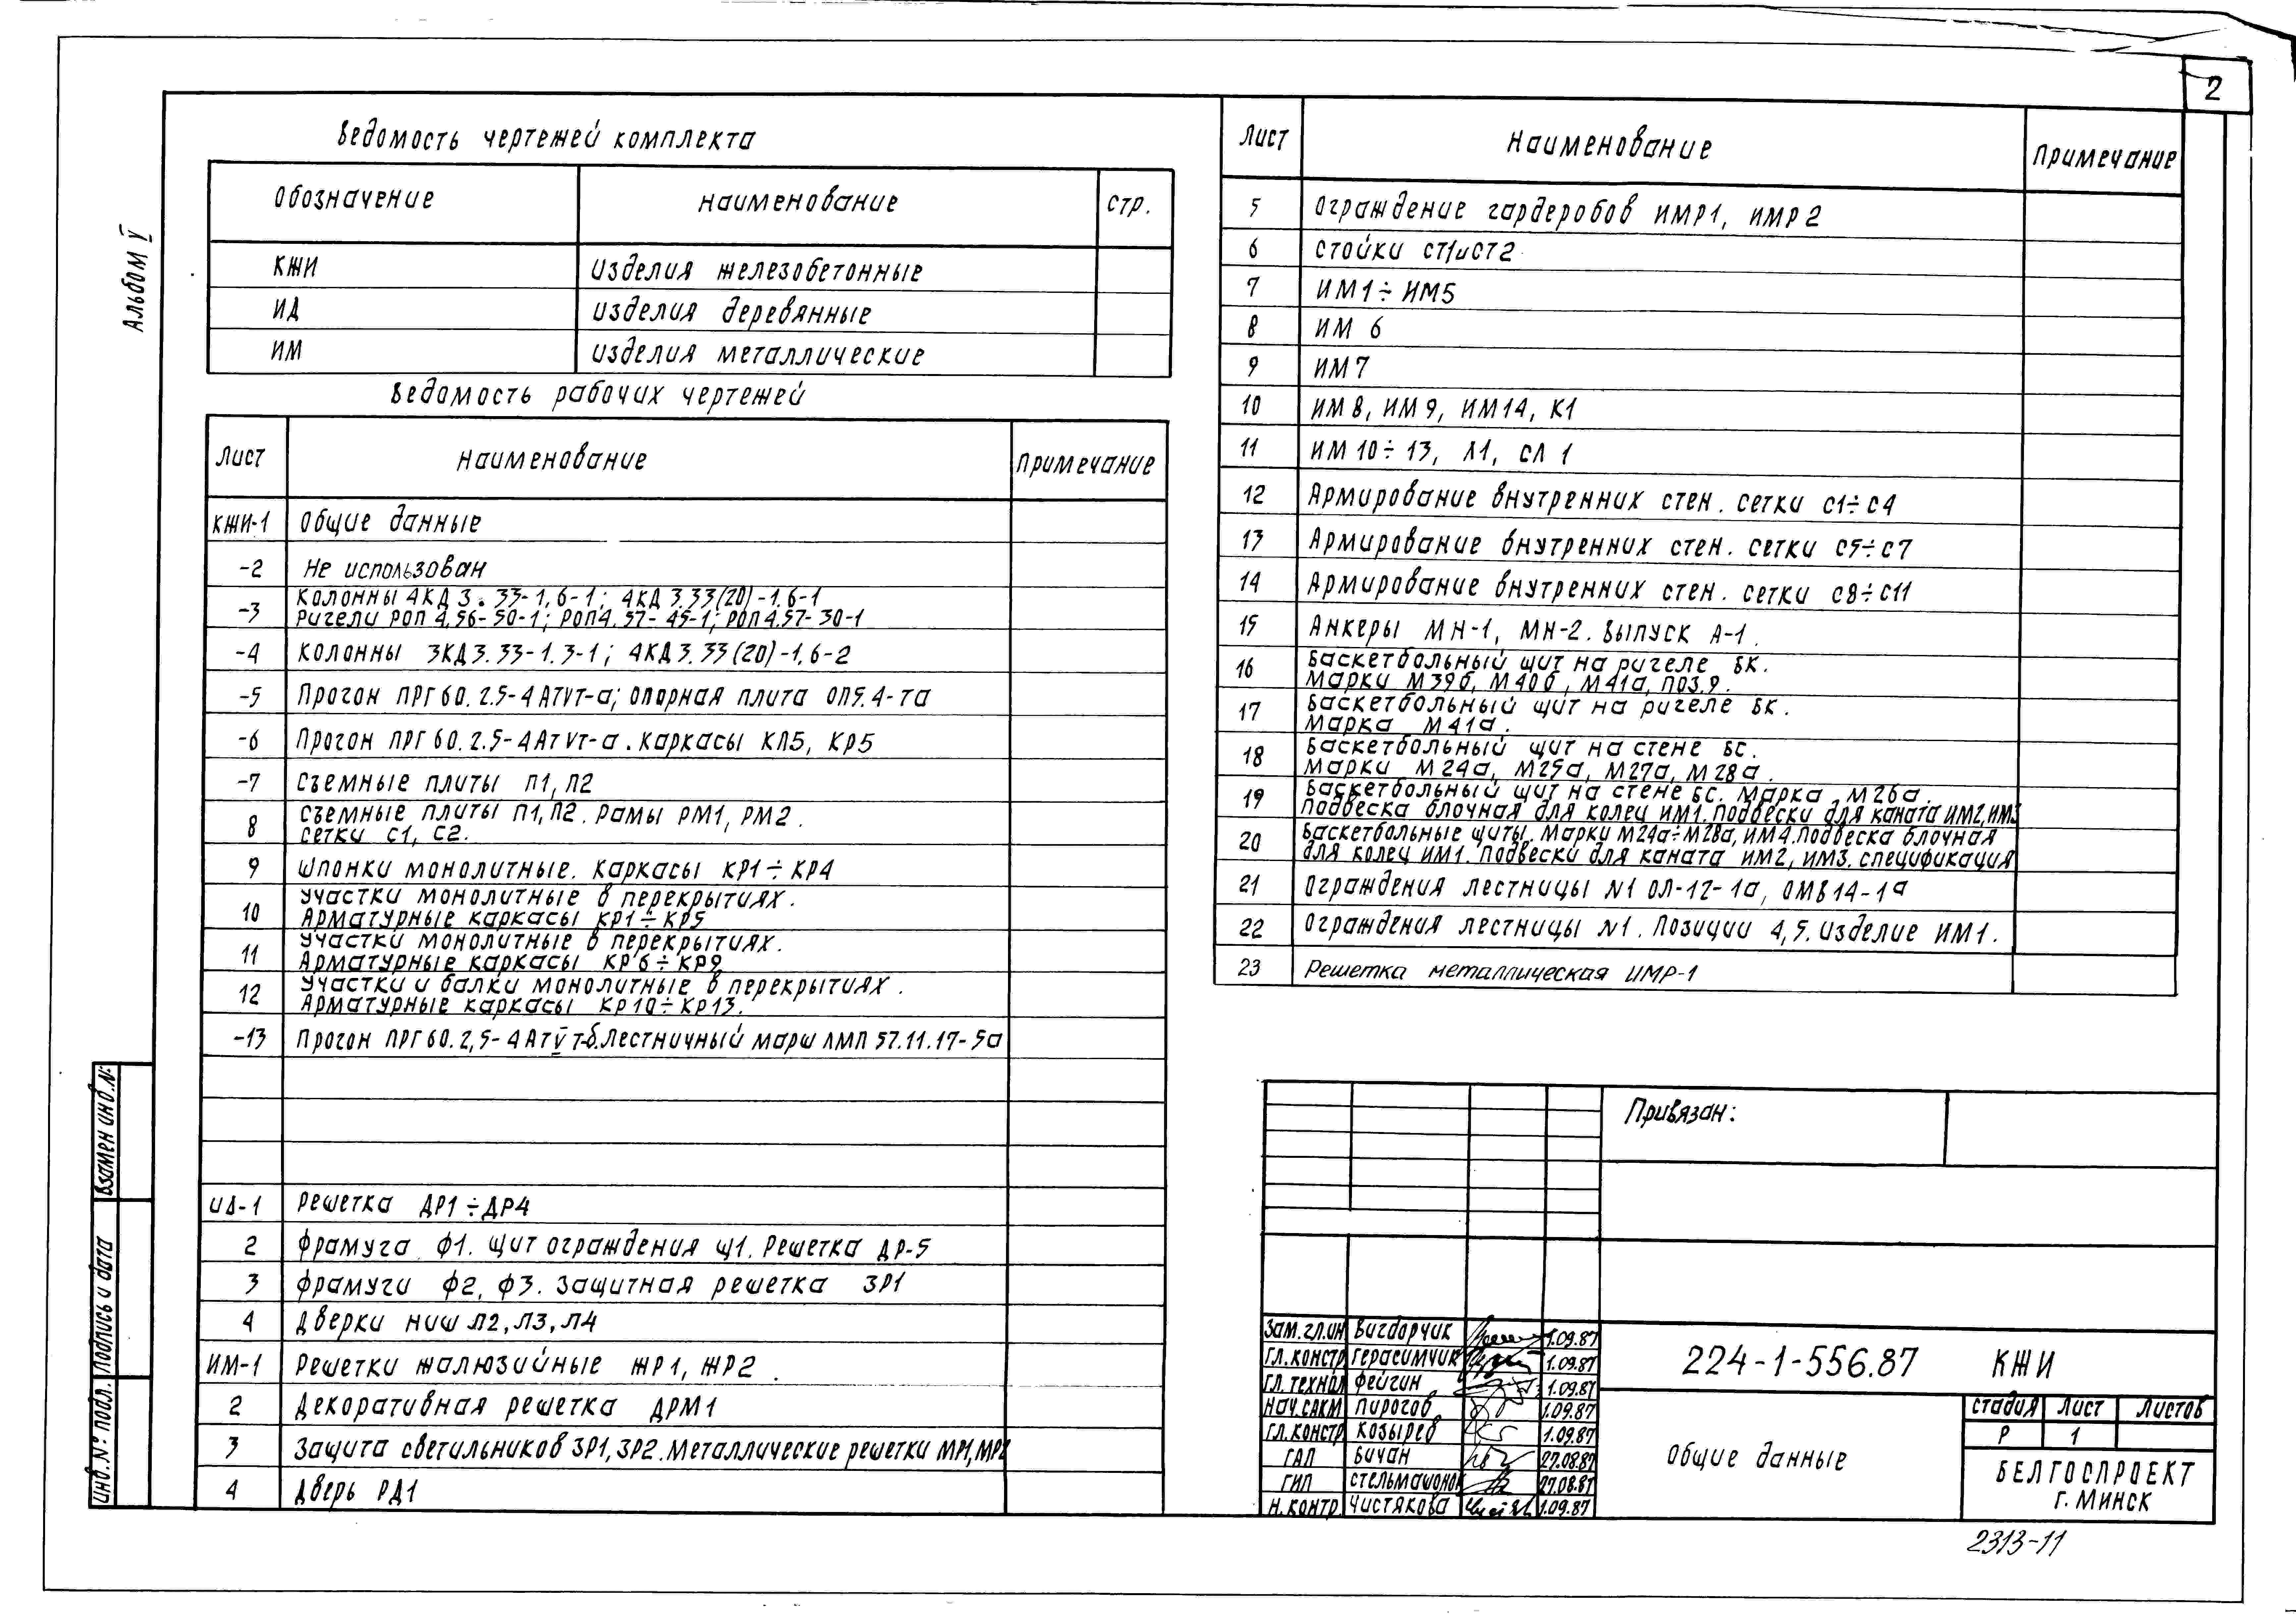 2
Альбом V
Ведомость чертежей комплекта
Обозначение наименование стр.
КЖИ изделия железобетонные
ИД изделия деревянные
ИМ изделия металлические
Ведомость рабочих чертежей
Лист наименование примечание
КЖИ-1 Общие данные
-2 Не использован
-3 Колонны 4КД 3.33-1,6-1; 4КД 3.33(20)-1.6-1
Ригели РОП 4.56-50-1; РОП4.57-45-1; РОП4.57-30-1
-4 Колонны 3КД3.33-1.3-1; 4КД3.33(20)-1.6-2
-5 Прогон ПРГ60.2.5-4АтVт-а; опорная плита ОП5.4-Та
-6 Прогон ПРГ60.2.5-4АтVт-а. Каркасы КП5, КР5
-7 Съемные плиты П1, П2
8 Съемные плиты П1, П2. Рамы РМ1, РМ2.
Сетки С1, С2.
9 Шпонки монолитные. Каркасы КР1÷КР4
10 Участки монолитные в перекрытиях.
Арматурные каркасы КР1÷КР5
11 Участки монолитные в перекрытиях.
Арматурные каркасы КР6÷КР9
12 Участки и балки монолитные в перекрытиях.
Арматурные каркасы КР10÷КР13.
-13 Прогон ПРГ60.2,5-4АтVт-б. Лестничный марш ЛМП 57.11.17-5а
ИД-1 Решетка ДР1÷ДР4
2 Фрамуга Ф1. Щит ограждения Щ1. Решетка ДР-5
3 Фрамуги Ф2, Ф3. Защитная решетка ЗР1
4 Дверки ниш Л2, Л3, Л4
ИМ-1 Решетки жалюзийные ЖР1, ЖР2.
2 Декоративная решетка ДРМ1
3 Защита светильников ЗР1, ЗР2. Металлические решетки МР1, МР2
4 Дверь РД1
Лист Наименование Примечание
5 Ограждение гардеробов ИМР1, ИМР2
6 Стойки СТ1 и СТ2
7 ИМ1÷ИМ5
8 ИМ 6
9 ИМ7
10 ИМ8, ИМ9, ИМ14, К1
11 ИМ10÷13, Л1, СЛ 1
12 Армирование внутренних стен. Сетки С1÷С4
13 Армирование внутренних стен. Сетки С5÷С7
14 Армирование внутренних стен. Сетки С8÷С11
15 Анкеры МН-1, МН-2. Выпуск А-1.
16 Баскетбольный щит на ригеле БК.
Марки М39б, М40б, М41а, поз.9.
17 Баскетбольный щит на ригеле БК.
Марка М41а.
18 Баскетбольный щит на стене БС.
Марки М24а, М25а, М27а, М28а.
19 Баскетбольный щит на стене БС. Марка М26а.
Подвеска блочная для колец ИМ1. Подвески для каната ИМ2, ИМ3
20 Баскетбольные щиты. Марки М24а÷М28а, ИМ4. Подвеска блочная
для колец ИМ1. Подвески для каната ИМ2, ИМ3. Спецификация
21 Ограждения лестницы №1 ОЛ-12-1а, ОМВ14-1а
22 Ограждения лестницы №1. Позиции 4,5. Изделие ИМ1.
23 Решетка металлическая ИМР-1
Привязан:
Зам.гл.ин Вигдорчик 1.09.87
Гл.констр Герасимчик 1.09.87
Гл.технол Фейгин 1.09.87
Нач.САКМ Пирогов 1.09.87
Гл.констр Козырев 1.09.87
ГАП Бичан 27.08.87
ГИП Стельмашонок 27.08.87
Н.контр. Чистякова 1.09.87
224-1-556.87 КЖИ
Общие данные
Стадия Лист Листов
Р 1
БЕЛГОСПРОЕКТ
г. Минск
Взамен инв.№
Подпись и дата
Инв.№ подл.
2313-11